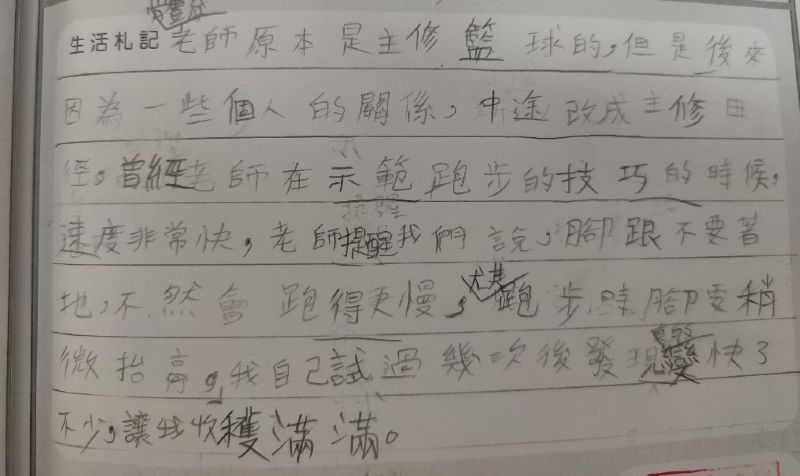 體育
生活札記 老師原本是主修籃球的,但是後來
因為一些個人的關係,中途改成主修田
徑,曾經老師在示範跑步的技巧的時候,
速度非常快,老師提醒我們說,腳跟不要著
地,不然會跑得更慢,尤其跑步時腳要稍
微抬高,我自己試過幾次後發現變快了
不少,讓我收穫滿滿。